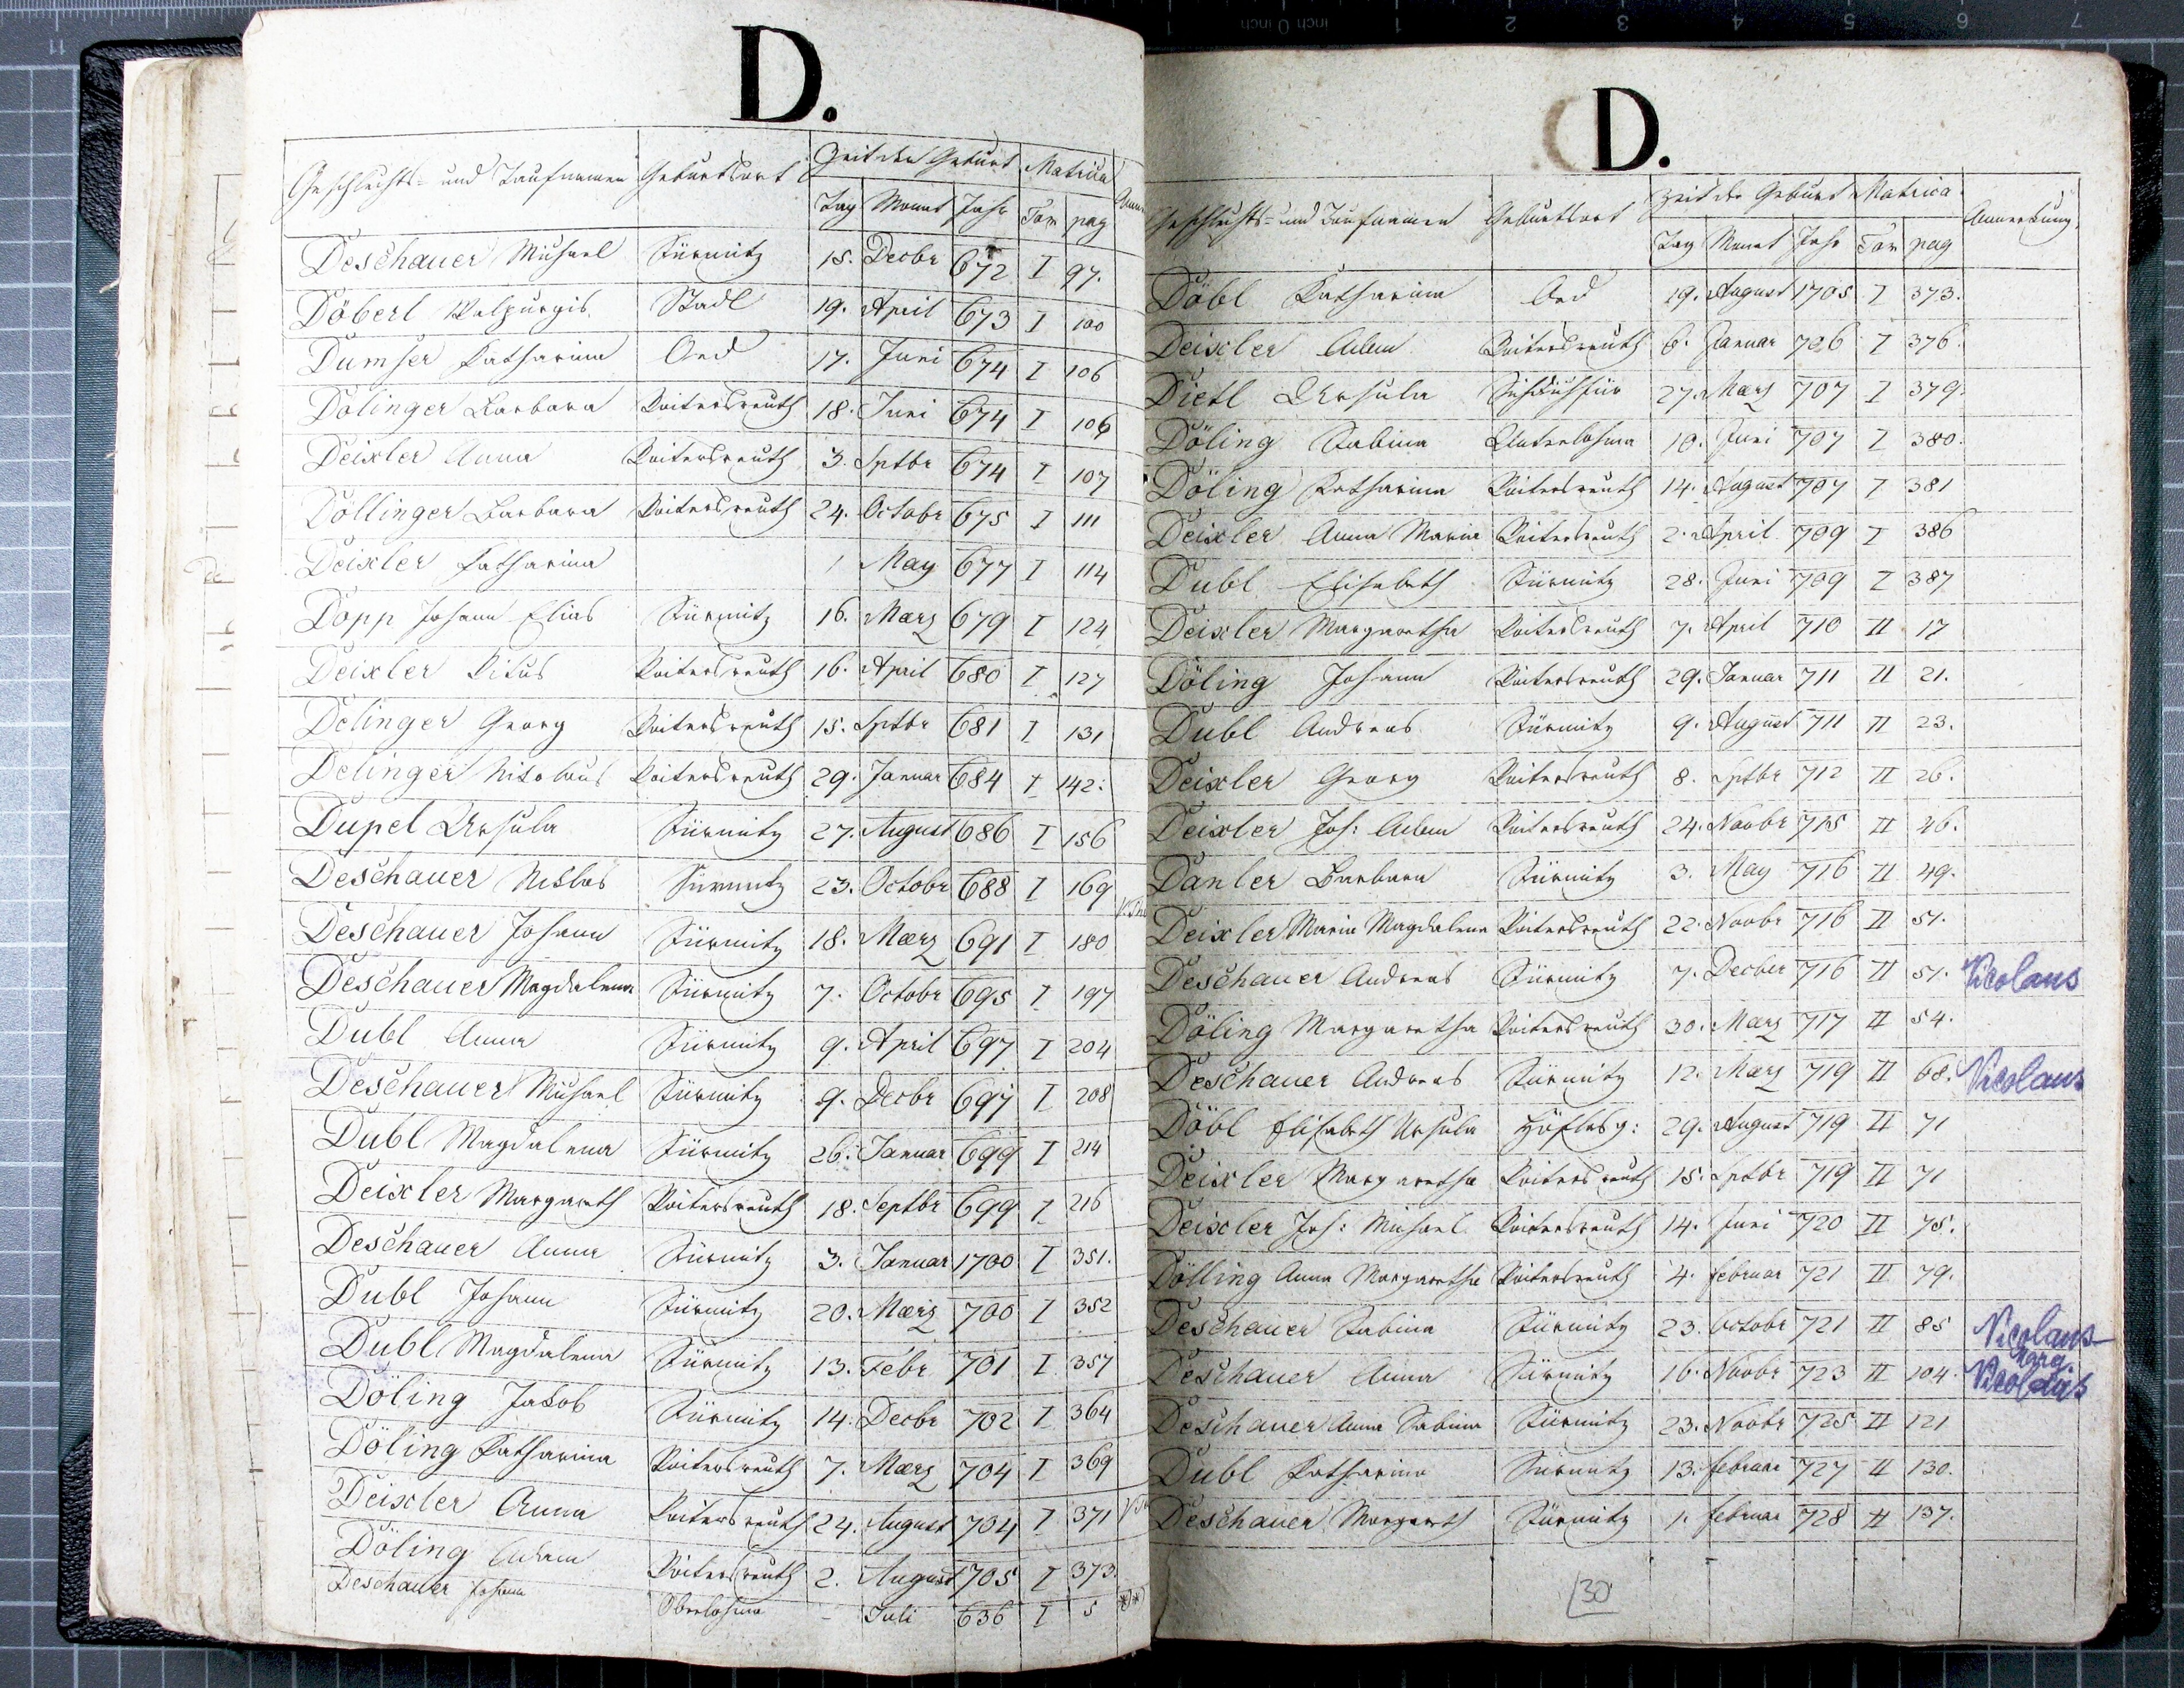 D.
Geschlechts- und Taufnamen Geburtsort Zeit der Geburt Matrica
Tag Monat Jahr Tom pag
Deschauer Michael Sürmitz 15. Decbr 672 I 97.
Döberl Walpurgis Stadl 19. April 673 I 100
Dumser Katharina Oed 17. Juni 674 I 106
Dolinger Barbara Poitersreuth 18. Juni 674 I 106
Deixler Anna Poitersreuth 3. Sptbr 674 I 107
Döllinger Barbara Poitersreuth 24. Octobr 675 I 111
Deixler Katharina 1 May 677 I 114
Dopp Johann Elias Sürmitz 16. März 679 I 124
Deixler Vitus Poitersreuth 16. April 680 I 127
Delinger Georg Poitersreuth 15. Sptbr 681 I 131
Delinger Nikolaus Poitersreuth 29. Januar 684 I 142.
Dupel Ursula Sürmitz 27. August 686 I 156
Deschauer Niklas Sürmitz 23. Octobr 688 I 169
Deschauer Johann Sürmitz 18. März 691 I 180
Deschauer Magdalena Sürmitz 7. Octobr 695 I 197
Dubl Anna Sürmitz 9. April 697 I 204
Deschauer Michael Sürmitz 9. Decbr 697 I 208
Dubl Magdalena Sürmitz 26. Januar 699 I 214
Deixler Margareth Poitersreuth 18. Septbr 699 I 216
Deschauer Anna Sürmitz 3. Januar 1700 I 351.
Dubl Johann Sürmitz 20. März 700 I 352
Dubl Magdalena Sürmitz 13. Febr 701 I 357
Döling Jakob Sürmitz 14. Decbr 702 I 364
Döling Katharina Poitersreuth 7. März 704 I 369
Deixler Anna Poitersreuth 24. August 704 I 371
Döling Adam Poitersreuth 2. August 705 I 373.
Deschauer Johann Oberlohma - Juli 636 I 5
D.
Geschlechts- und Taufnamen Geburtsort Zeit der Geburt Matrica Anmerkung.
Tag Monat Jahr Tom pag
Döbl Katharina Oed 19. August 1705 I 373.
Deixler Adam Poitersreuth 6. Januar 706 I 376.
Dietl Ursula 27. März 707 I 379.
Döling Sabina Unterlohma 10. Juni 707 I 380.
Döling Katharina Poitersreuth 14. August 707 I 381
Deixler Anna Maria Poitersreuth 2. April 709 I 386
Dubl Elisabeth Sürmitz 28. Juni 709 I 387
Deixler Margaretha Poitersreuth 7. April 710 II 17
Döling Johann Poitersreuth 29. Januar 711 II 21.
Dubl Andreas Sürmitz 9. August 711 II 23.
Deixler Georg Poitersreuth 8. Sptbr 712 II 26.
Deixler Joh: Adam Poitersreuth 24. Novbr 715 II 46.
Danler Barbara Sürmitz 3. May 716 II 49.
Deixler Maria Magdalena Poitersreuth 22. Novbr 716 II 51.
Deschauer Andreas Sürmitz 7. Decber 716 II 51. Nicolaus
Döling Margaretha Poitersreuth 30. März 717 II 54.
Deschauer Andreas Sürmitz 12. März 719 II 68. Nicolaus
Döbl Elisabeth Ursula Höflasg: 29. August 719 II 71
Deixler Margaretha Poitersreuth 15. Sptbr 719 II 71
Deixler Joh: Michael Poitersreuth 14. Juni 720 II 75.
Dölling Anna Margaretha Poitersreuth 4. Februar 721 II 79.
Deschauer Sabina Sürmitz 23. Octobr 721 II 85 Nicolaus
Marg.
Deschauer Anna Sürmitz 16. Novbr 723 II 104. Nicolaus
Deschauer Anna Sabina Sürmitz 23. Novbr 725 II 121
Dubl Katharina Sürmitz 13. Februar 727 II 130.
Deschauer Margareth Sürmitz 1. Februar 728 II 137.
30